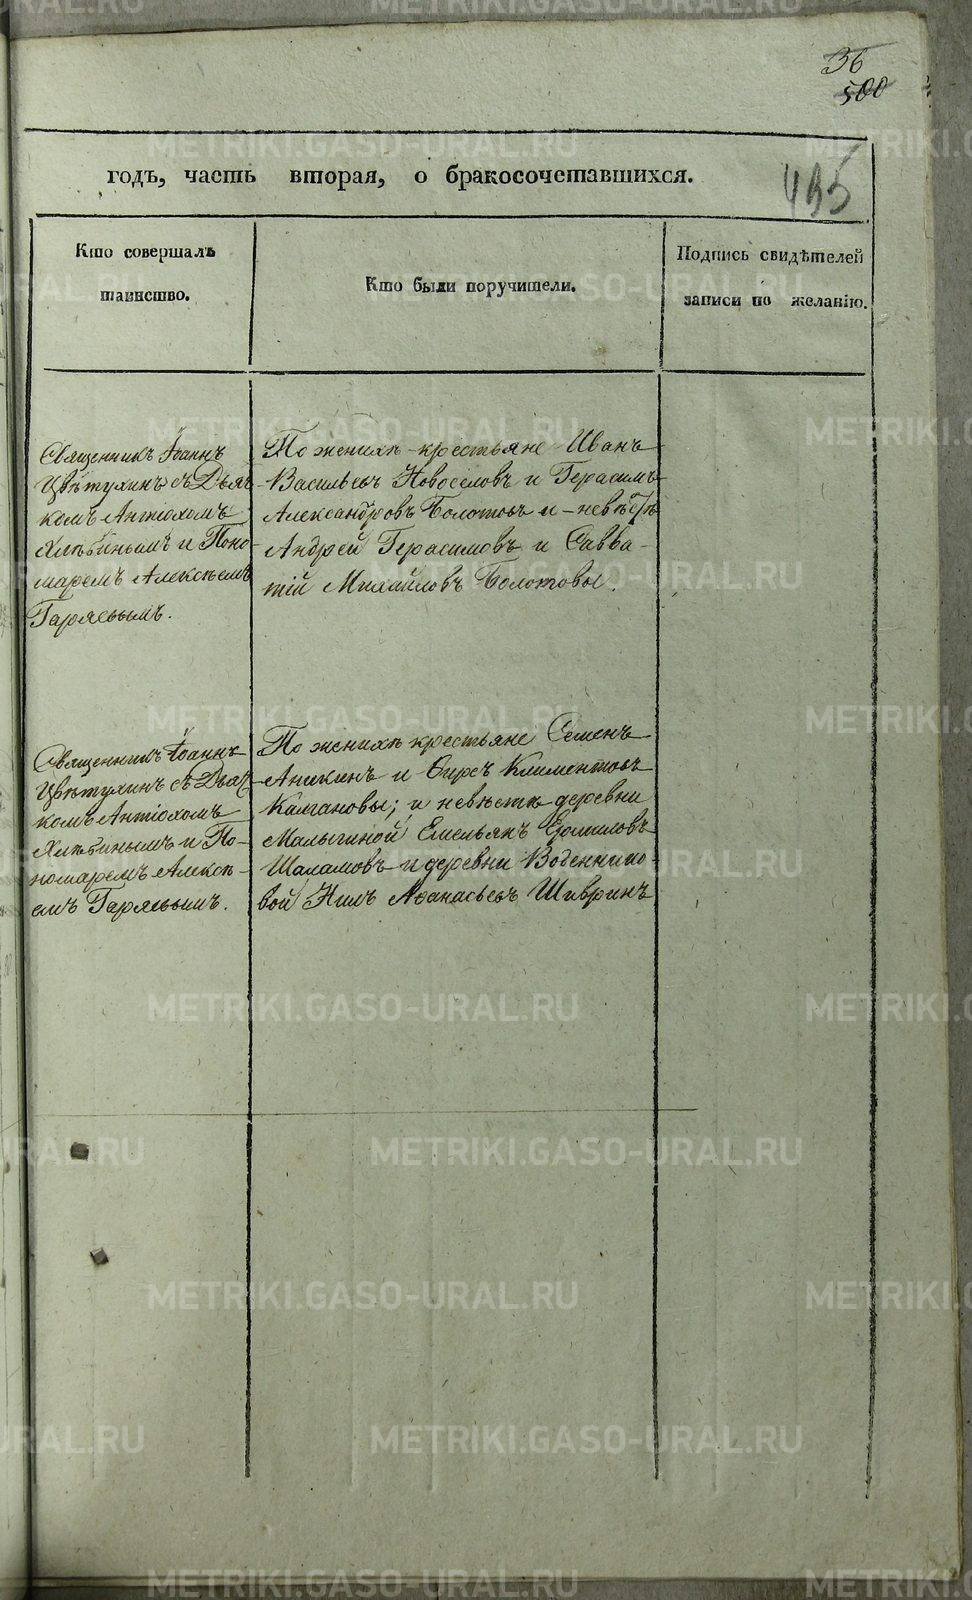 36
500
годъ, часть вторая, о бракосочетавшихся.
495
Кто совершалъ
таинство.
Кто были поручители.
Подпись свидѣтелей
записи по желанію.
Священникъ Іоаннъ
Цвѣтухинъ съ Дьяч-
комъ Антіохомъ
Хлѣбинымъ и Поно-
маремъ Алексѣемъ
Гаряевымъ.
По женихѣ крестьяне Иванъ
Васильевъ Новоселовъ и Герасимъ
Александровъ Болотовъ и невѣстѣ
Андрей Герасимовъ и Савва-
тій Михайловъ Болотовы.
Священникъ Іоаннъ
Цвѣтухинъ съ Дьяч-
комъ Антіохомъ
Хлѣбинымъ и По-
номаремъ Алексѣ-
емъ Гаряевымъ.
По женихѣ крестьяне Семенъ
Аникинъ и Фирсъ Климентовъ
Калгановы; и невѣстѣ деревни
Малыгиной Емельянъ Ермиловъ
Шаламовъ и деревни Воденнико-
вой Нилъ Аѳанасьевъ Шавринъ
METRIKI.GASO-URAL.RU